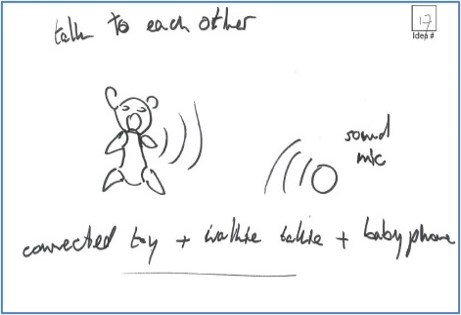 talk to each other
17
Idea #
sound
mic
connected toy + walkie talkie + baby phone